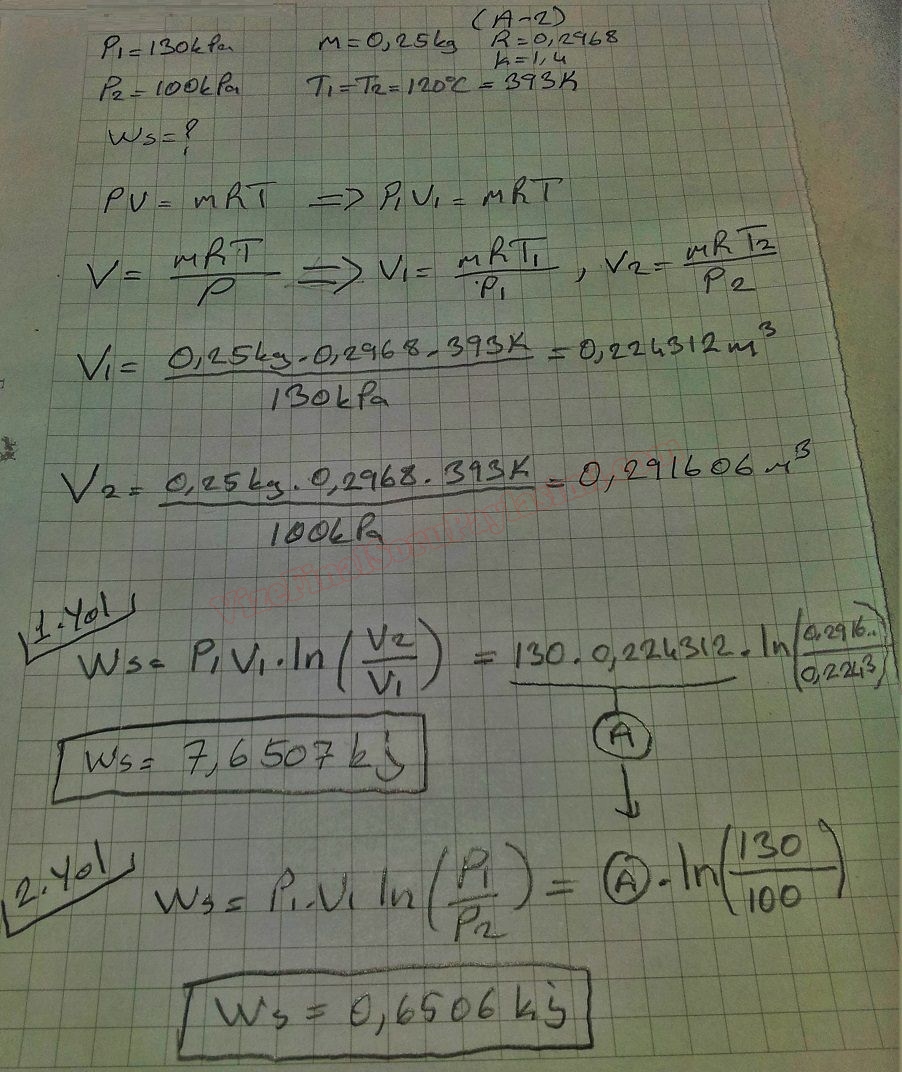 (A-2)
P1=130kPa m=0,25kg R=0,2968
k=1,4
P2=100kPa T1=T2=120°C=393K
Ws=?
PV=mRT => P1V1=mRT
V= mRT/P => V1= mRT1/P1 , V2= mRT2/P2
V1= 0,25kg.0,2968.393K/130kPa =0,224312m³
V2= 0,25kg.0,2968.393K/100kPa =0,291606m³
1.Yol
Ws= P1V1.ln(V2/V1) = 130.0,224312.ln(0,2916../0,2243)
A
Ws= 7,6507kj
2.Yol
Ws= P1.V1 ln(P1/P2) = A.ln(130/100)
Ws=0,6506kj